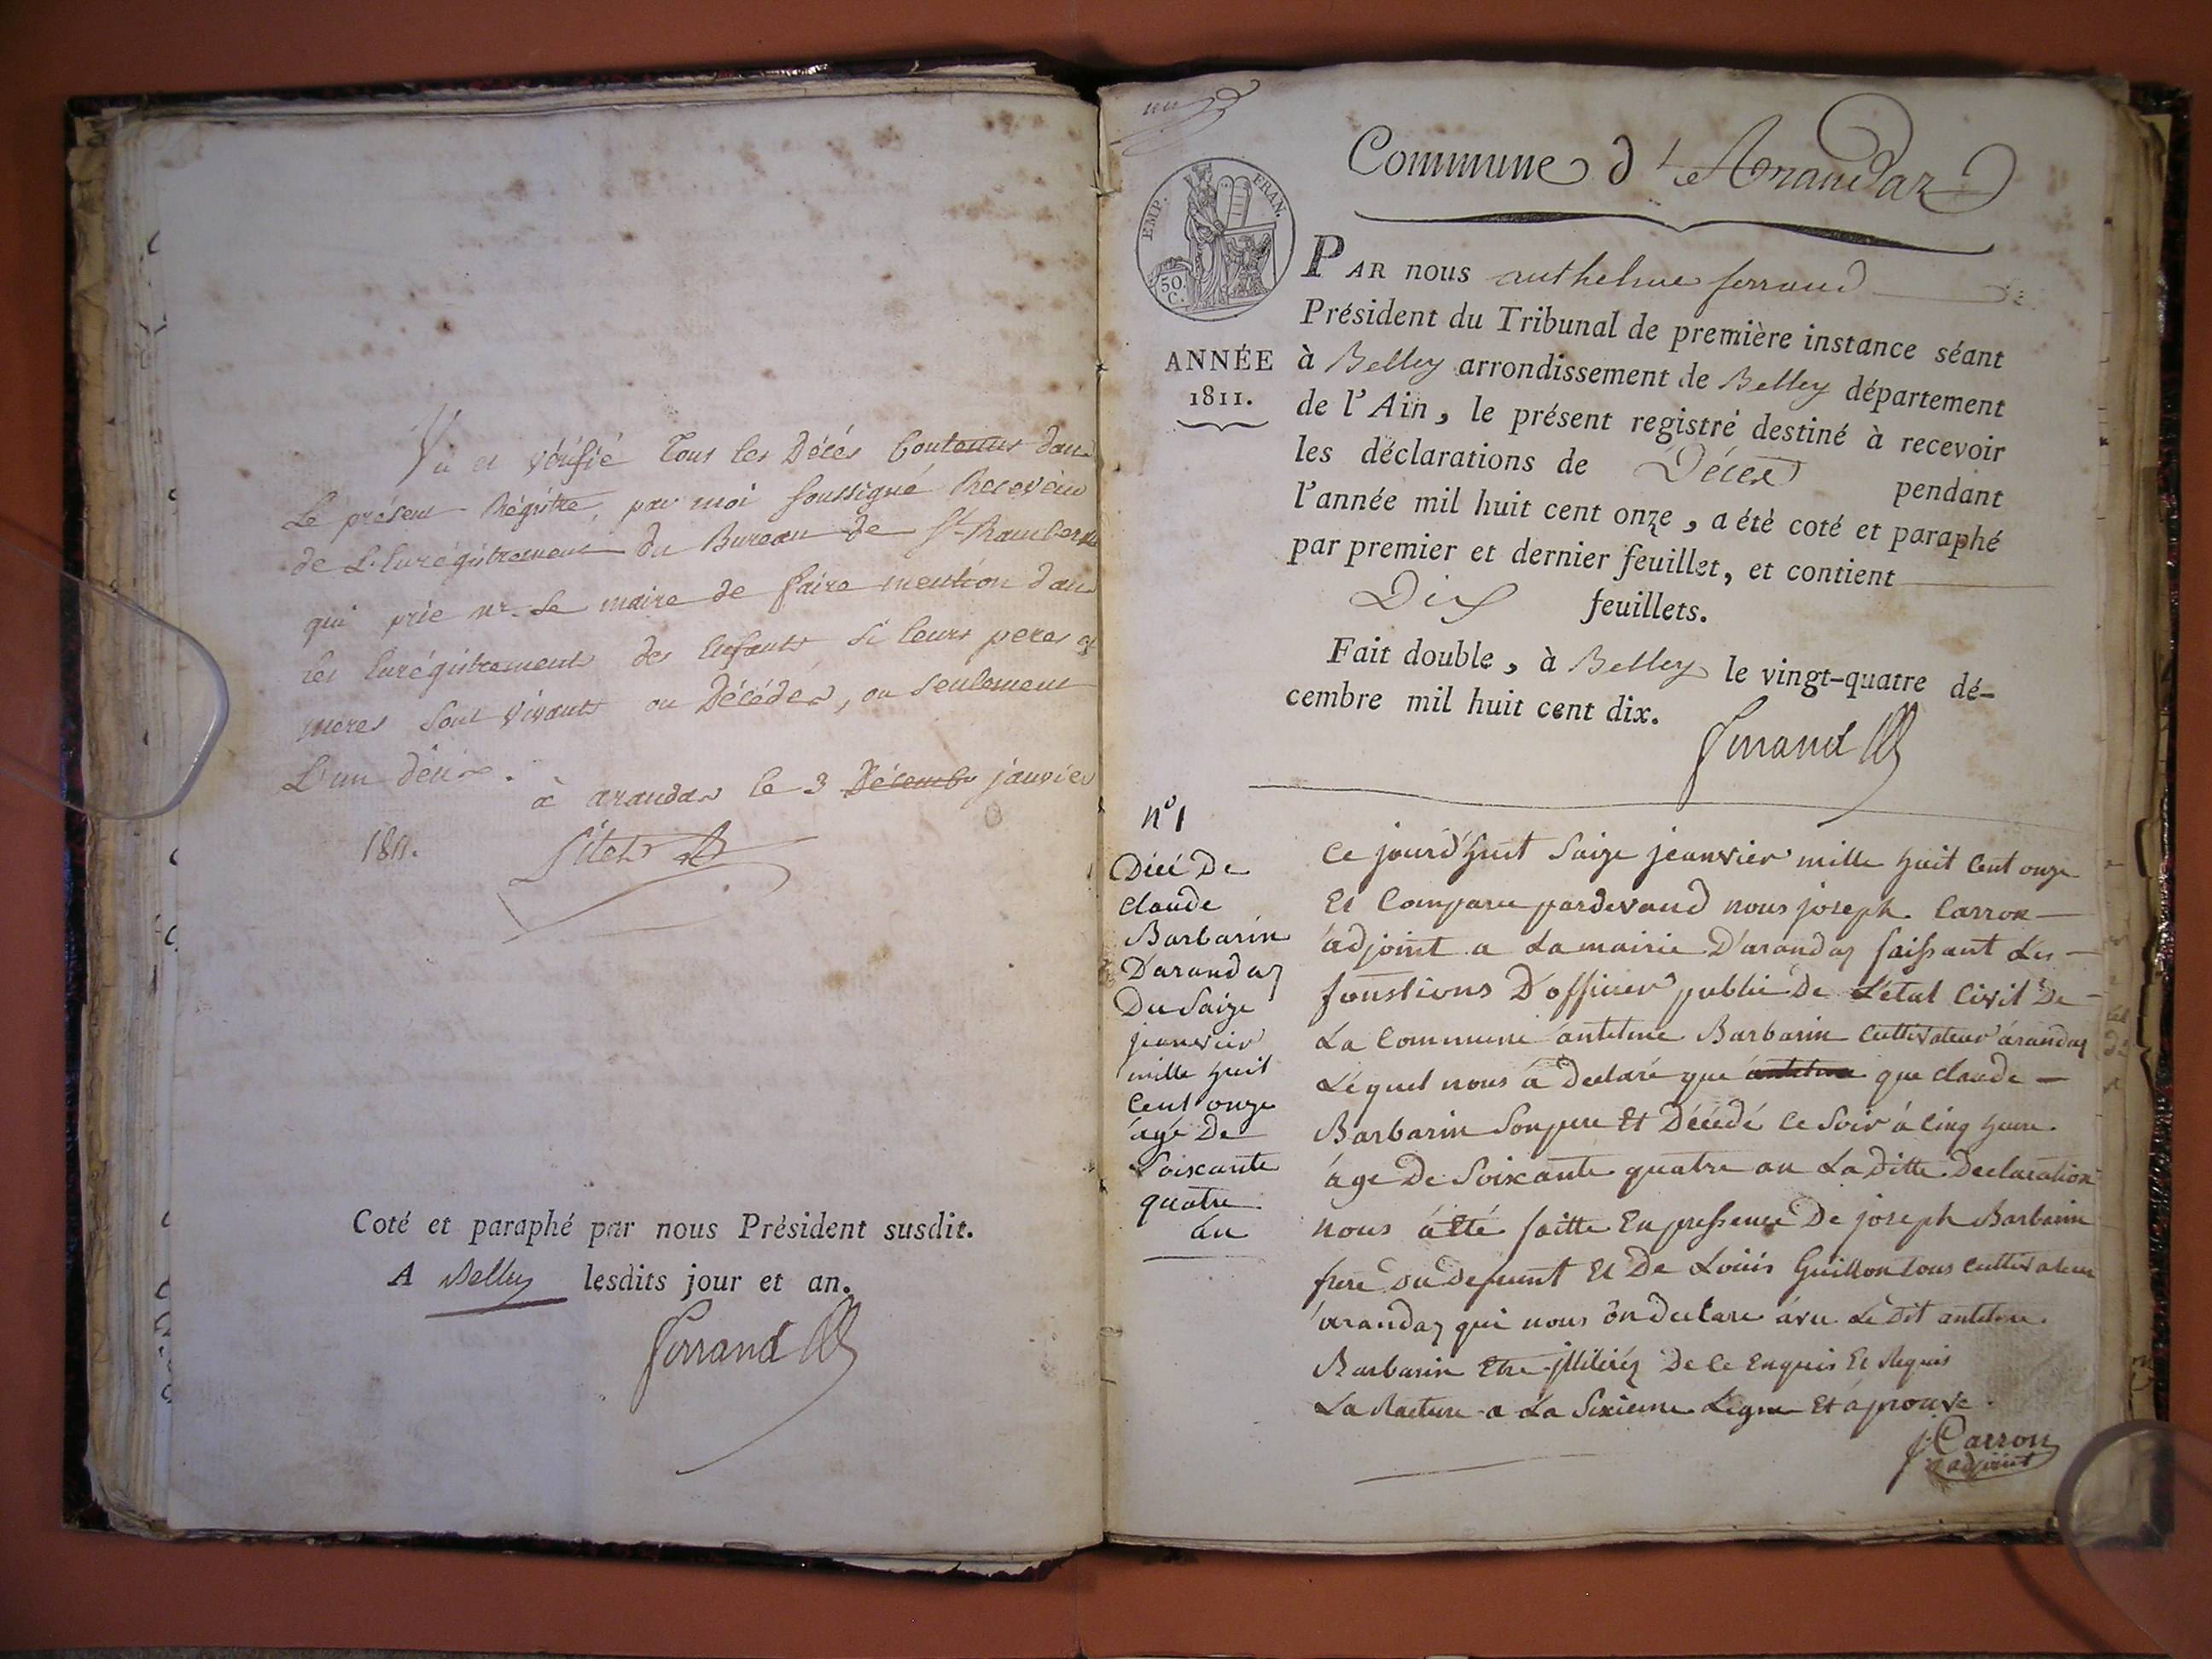 Vu et vérifié tous les Décés Contenus dans
Le présent Régistre, par moi soussigné Receveur
de L'Enrégistrement du Bureau de St. Rambert
qui prie Mr. Le maire de faire mention dans
les Enrégistrements des Enfants si leurs peres et
meres sont vivants ou Décédés, ou seulement
L'un d'eux.
à arandas le 3 Décembre janvier
1811.
Coté et paraphé par nous Président susdit.
A Belley lesdits jour et an.
Ferrand
Commune d'Arandas
EMP. FRAN.
50 C.
ANNÉE
1811.
PAR nous anthelme ferrand
Président du Tribunal de première instance séant
à Belley arrondissement de Belley département
de l'Ain, le présent registre destiné à recevoir
les déclarations de Décès pendant
l'année mil huit cent onze, a été coté et paraphé
par premier et dernier feuillet, et contient
Dix feuillets.
Fait double, à Belley le vingt-quatre dé-
cembre mil huit cent dix.
Ferrand
n° 1
Décé De
Claude
Barbarin
D'arandas
Du saize
jeanvier
mille huit
Cent onze
âgé De
soixante
quatre
an
Ce jourd'huit saize jeanvier mille huit Cent onze
Et Comparu pardevand nous joseph Carron
adjoint a La mairie D'arandas faissant Les
fonstions D'officier public De L'état Civil De
La Commune antelme Barbarin Cultivateur árandas
Léquel nous á Declaré que antelme que Claude
Barbarin Son pere Et Décédé Ce Soir á Cinq heure
áge De Soixante quatre an La ditte Declaration
nous á Eté faitte En pressence De joseph Barbarin
frere du defeunt Et De Louis Guillon tous Cultivateur
árandas qui nous ôn Declare ávec Le dit antelme
Barbarin Etre jlliterés De Ce Enquis Et Requis
La Rature a La Sixieme Ligne Et áprouve
j. Carron
adjoint